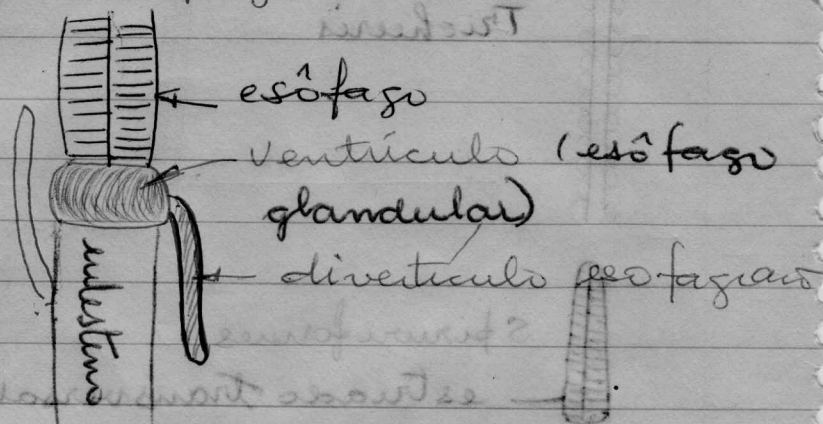 esôfago
ventrículo (esôfago
glandular)
divertículo esofagiano
intestino